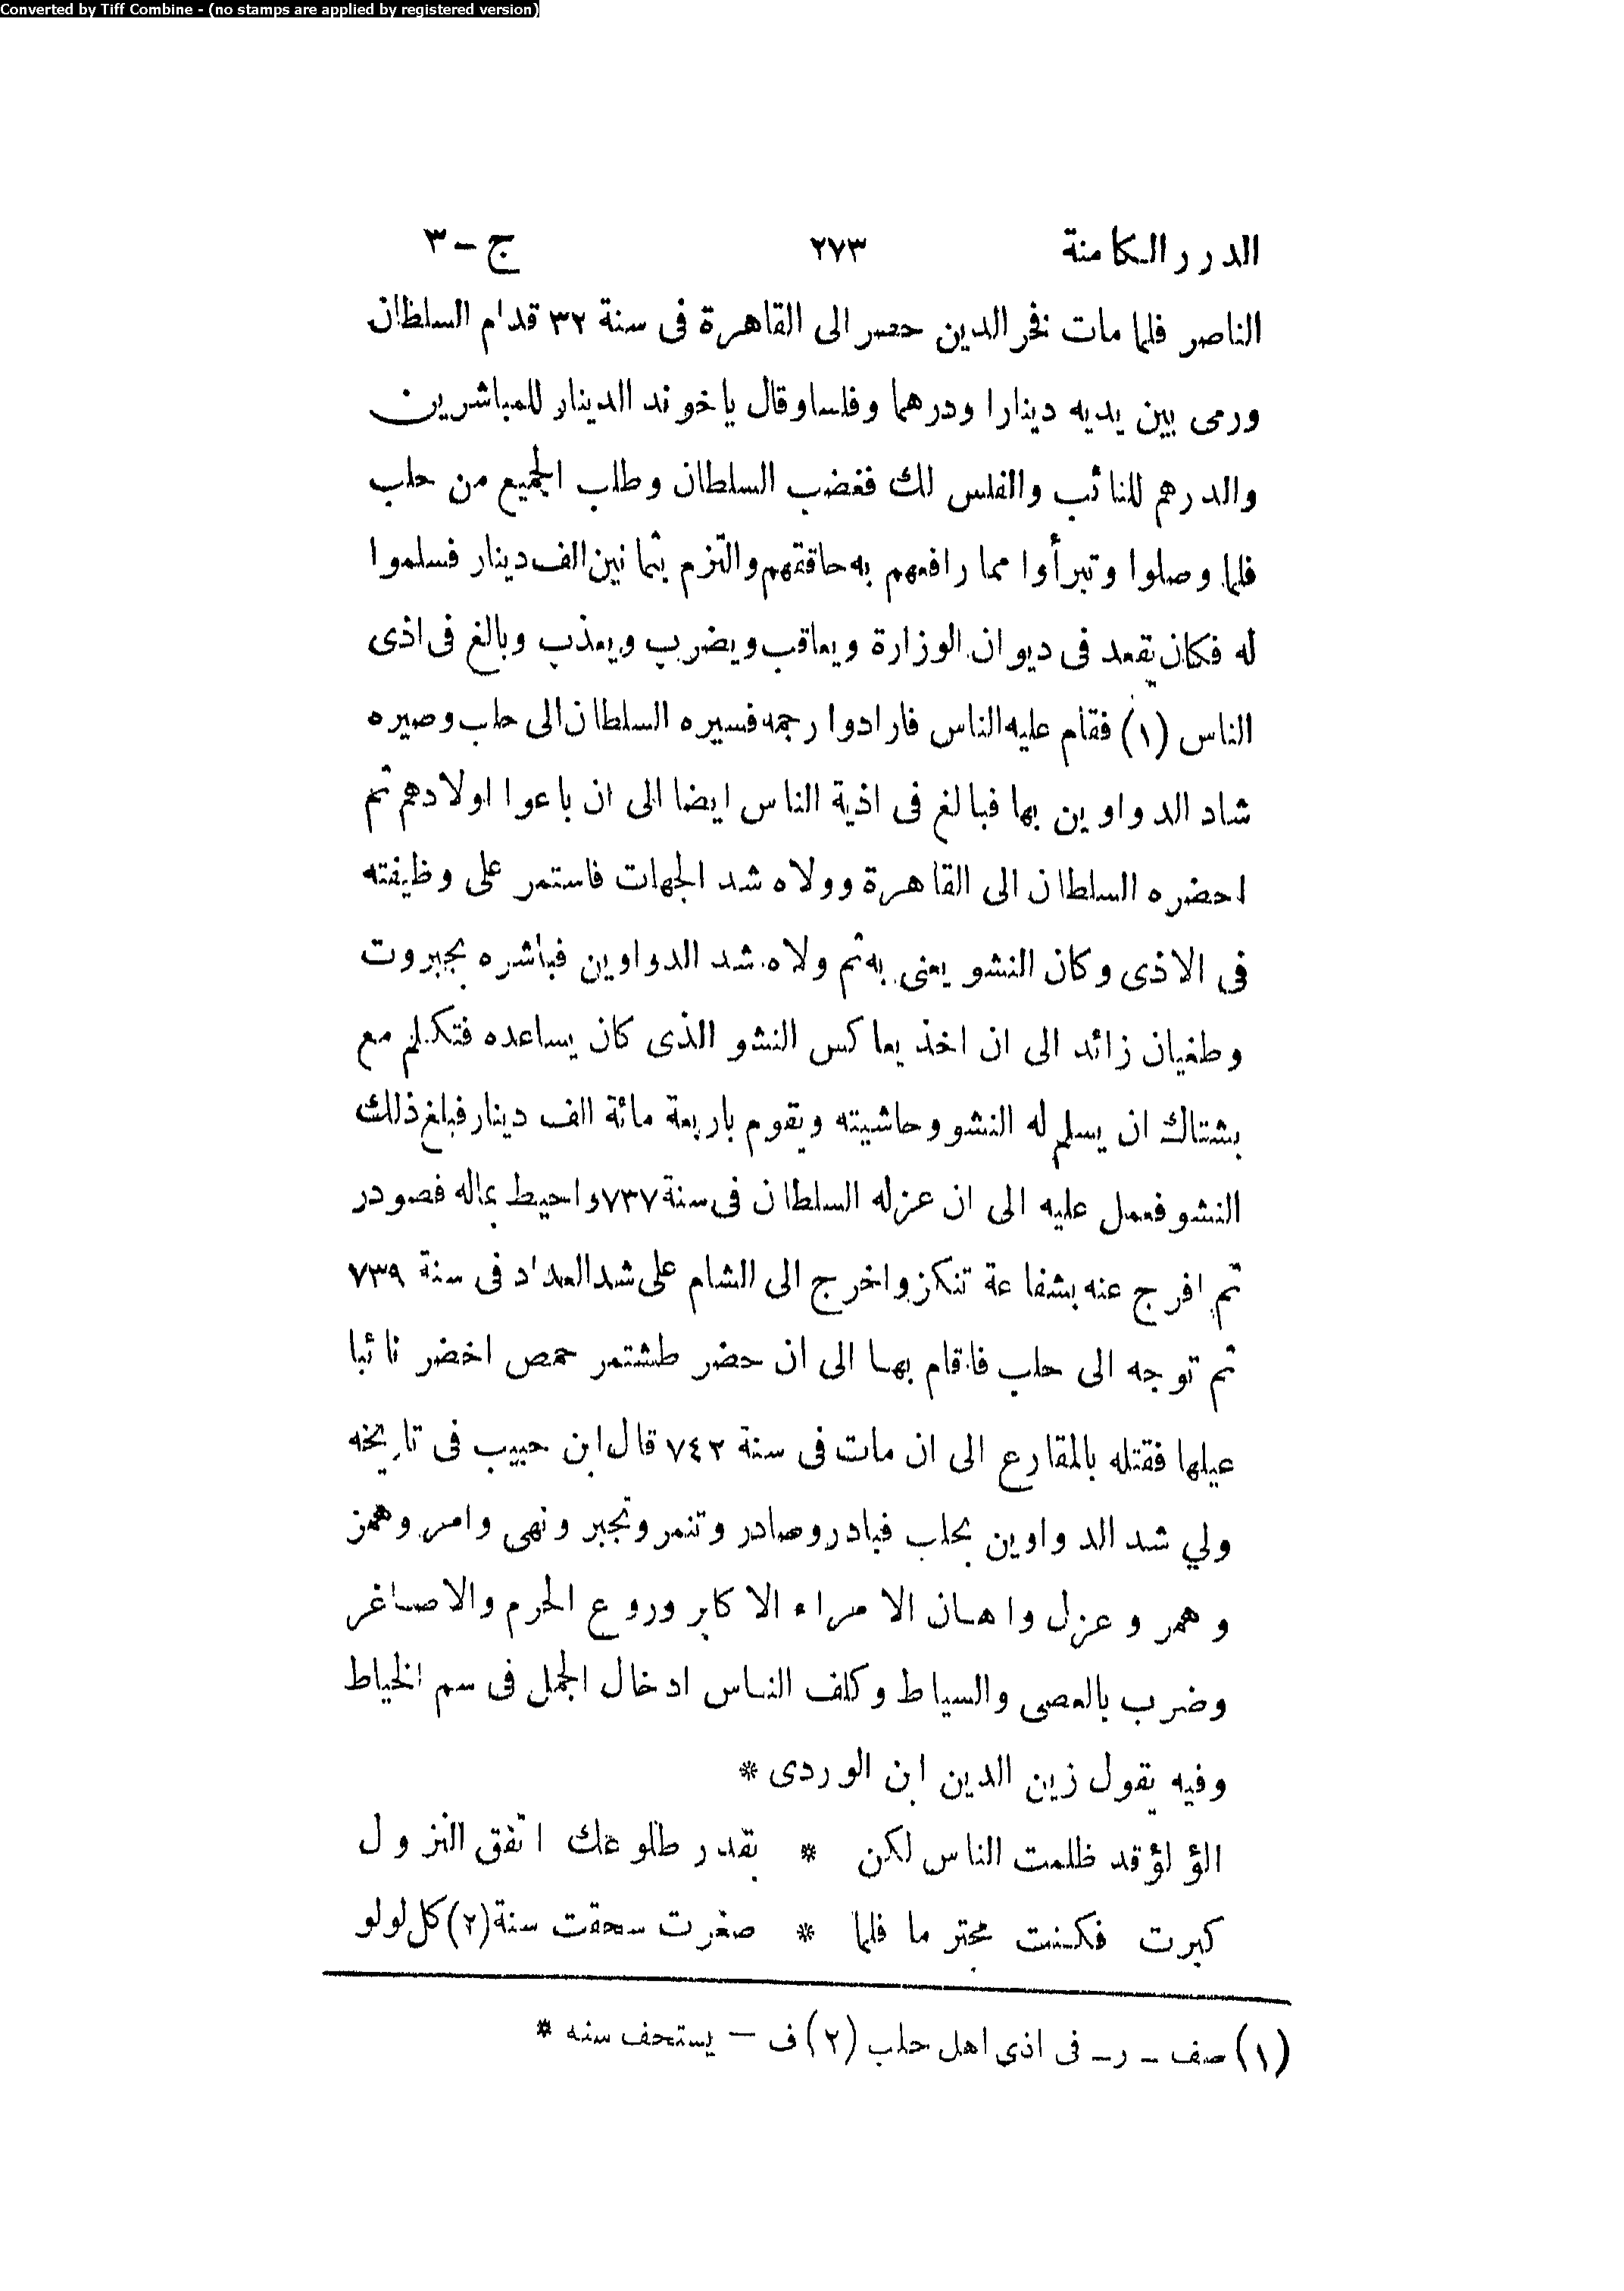 Converted by Tiff Combine - (no stamps are applied by registered version)
الدرر الكامنة ٢٧٣ ج - ٣
الناصر فلما مات فخر الدين حصر الى القاهرة فى سنة ٣٢ قدام السلطان
ورمى بين يديه دينارا ودرهما وفلسا وقال ياخوند الدينار للمباشرين
والدرهم للنائب والفلس لك فغضب السلطان وطلب الجميع من حلب
فلما وصلوا وتبرأوا مما رافعهم به حاققهم والتزم بثمانين الف دينار فسلموا
له فكان يقعد فى ديوان الوزارة ويعاقب ويضرب ويعذب وبالغ فى اذى
الناس (١) فقام عليه الناس فارادوا رجمه فسيره السلطان الى حلب وصيره
شاد الدواوين بها فبالغ فى اذية الناس ايضا الى ان باعوا اولادهم ثم
احضره السلطان الى القاهرة وولاه شد الجهات فاستمر على وظيفته
فى الاذى وكان النشو يعنى به ثم ولاه شد الدواوين فباشره بجبروت
وطغيان زائد الى ان اخذ يعاكس النشو الذى كان يساعده فتكلم مع
بشتاك ان يسلم له النشو وحاشيته ويقوم باربعة مائة الف دينار فبلغ ذلك
النشو فعمل عليه الى ان عزله السلطان فى سنة ٧٣٧ واحيط بماله فصودر
ثم افرج عنه بشفاعة تنكز واخرج الى الشام على شد العداد فى سنة ٧٣٩
ثم توجه الى حلب فاقام بها الى ان حضر طشتمر حمص اخضر نائبا
عيلها فقتله بالمقارع الى ان مات فى سنة ٧٤٢ قال ابن حبيب فى تاريخه
ولي شد الدواوين بحلب فبادر وصادر وتنمر وتجبر ونهى وامر وهمز
وهمر وعزل واهان الامراء الاكابر وروع الحرم والاصاغر
وضرب بالعصى والسياط وكلف الناس ادخال الجمل فى سم الخياط
وفيه يقول زين الدين ابن الوردى *
الؤلؤ قد ظلمت الناس لكن * بقدر طلوعك اتفق النزول
كبرت فكنت محترما فلما * صغرت سحقت سنة (٢) كل لولو
(١) صف - ر - فى اذى اهل حلب (٢) ف - يستحف سنه *